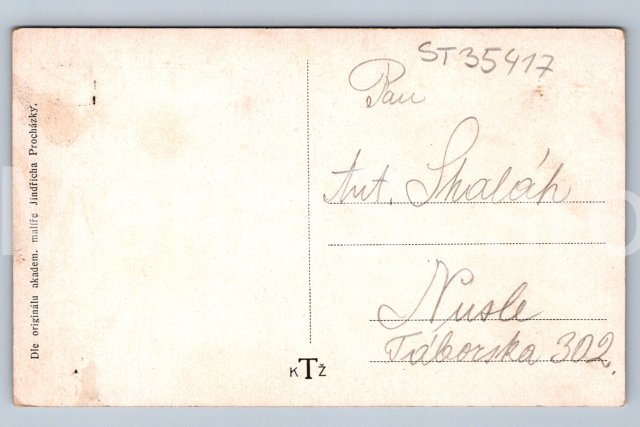 ST35417
Pan
Ant. Skaláh
Nusle
Táborska 302.
Dle originálu akadem. malíře Jindřicha Procházky.
K T Ž